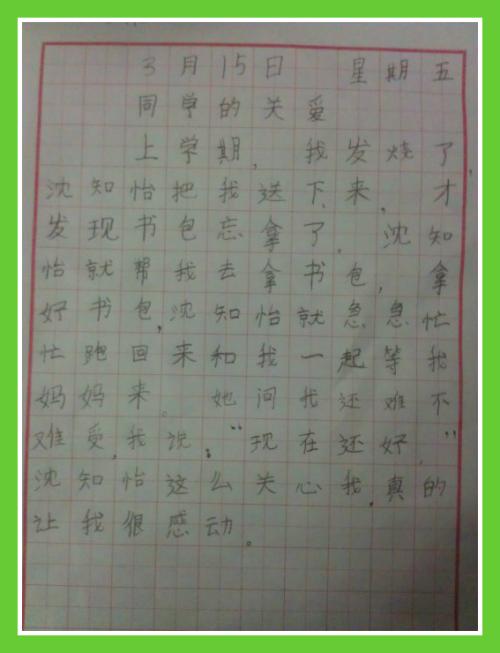 3月15日 星期五
同学的关爱
上学期，我发烧了，
沈知怡把我送下来，才
发现书包忘拿了。沈知
怡就帮我去拿书包，拿
好书包，沈知怡就急急忙
忙跑回来和我一起等我
妈妈来。她问我还难不
难受，我说：“现在还好。”
沈知怡这么关心我，真的
让我很感动。